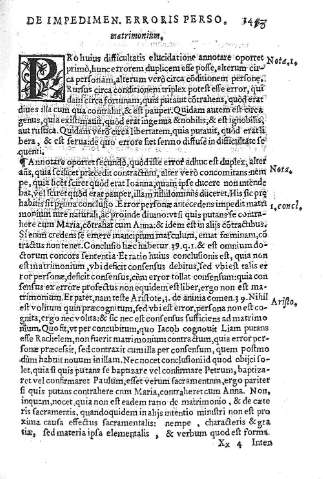 DE IMPEDIMEN. ERRORIS PERSO.
matrimonium.
PRo huius difficultatis elucidatione annotare oportet Nota, 1,
primò, hunc errorem duplicem esse posse, alterum cir-
ca personam, alterum verò circa conditionem personę.
Rursus circa conditionem triplex potest esse error, qui
dam circa fortunam, quòd putauit cōtrahens, quòd erat
diues illa cum qua contrahit, & est pauper. Quidam est error circa
genus, quia existimauit, quòd erat ingenua & nobilis, & est ignobilis,
aut rustica. Quidam verò circa libertatem, quia putauit, quòd erat li
bera, & est serua: de quo errore fiet sermo diffusè in difficultate se
quenti.
¶ Annotare oportet secundò, quòd iste error adhuc est duplex, alter Nota.
scilicet pręcedit contractum, alter verò concomitans nem
pe, quia licet sciret quòd erat Ioanna, quam ipse ducere non intende
bat, vel sciret quòd erat pauper, illam nihilominus duceret. His sic prę
habitis sit prima conclusio. Error personę antecedens impedit matri 1, concl.
monium iure naturali, ac proinde dium
here cum Maria, cōtrahat cum Anna: & idem est in alijs cōtractibus.
Si enim credens se emere mancipium masculum, emat foeminam, cō
tractus non tenet. Conclusio hæc habetur 29. q. 1. & est omnium do-
ctorum concors sententia. Et ratio huius conclusionis est, quia non
est matrimonium, vbi deficit consensus debitus, sed vbi est talis er
ror personæ, deficit consensus, cùm error tollat consensum: quia con
sensus ex errore profectus non equidem est liber, ergo non est ma-
trimonium. Et patet, nam teste Aristote. 1. de anima comen. 39. Nihil Aristo,
est volitum quin præcognitum, sed vbi est error, persona non est co-
gnita, ergo nec volita: & sic nec est consensus sufficiens ad matrimo
nium. Quo fit, vt per concubitum, quo Iacob cognouit Liam putans
esse Rachelem, non fuerit matrimonium contractum, quia error per-
sonæ præcessit, sed contraxit cum illa per consensum, quem postmo
dùm habuit nouum in illam. Nec nocet conclusioni id quod obijci so-
let, quia si quis putans se baptizare vel confirmare Petrum, baptiza-
ret vel confirmaret Paulum, esset verum sacramentum, ergo pariter
si quis putans contrahere cum Maria, contraheret cum Anna. Non,
inquam, nocet, quia non est eadem ratio de matrimonio, & de cæte
ris sacramentis, quandoquidem in alijs intentio ministri non est pro
xima causa effectus sacramentalis: nempe, characteris & gra
tiæ, sed materia ipsa elementalis, & verbum quod est forma.
Xx 4 Inten